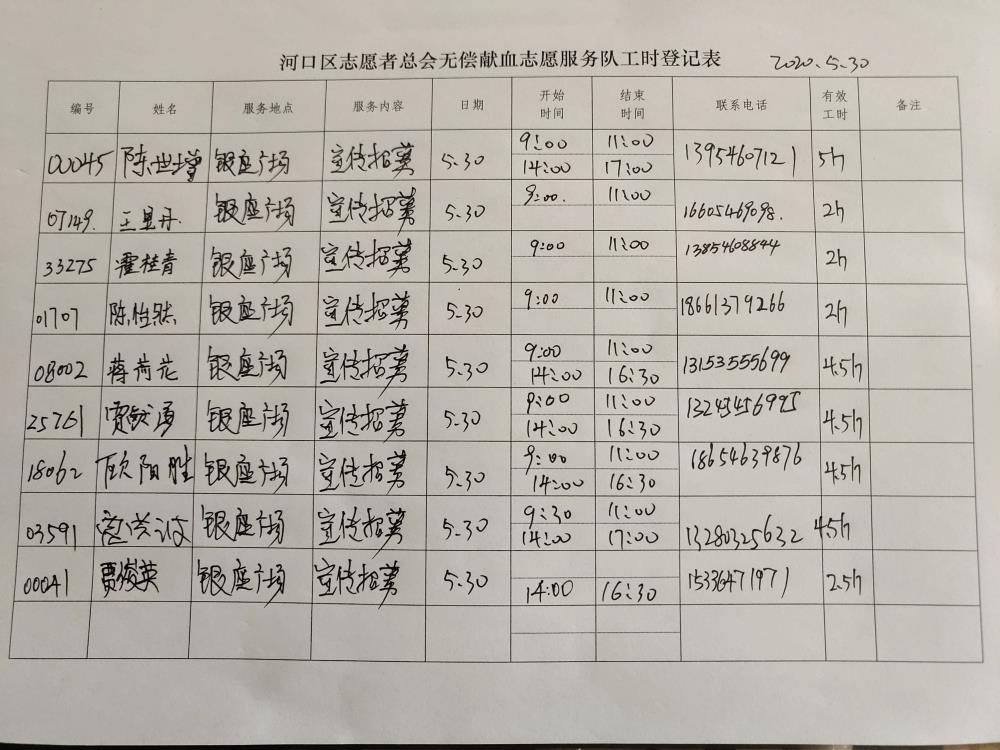 河口区志愿者总会无偿献血志愿服务队工时登记表 2020.5.30
编号 姓名 服务地点 服务内容 日期 开始时间 结束时间 联系电话 有效工时 备注
00045 陈世增 银座广场 宣传招募 5.30 9:00 11:00 13954607121 5h
14:00 17:00
07149. 王显丹. 银座广场 宣传招募 5.30 9:00. 11:00 16605469098. 2h
33275 霍桂青 银座广场 宣传招募 5.30 9:00 11:00 13854608844 2h
01707 陈怡然 银座广场 宣传招募 5.30 9:00 11:00 18661379266 2h
08002 蒋荷花 银座广场 宣传招募 5.30 9:00 11:00 13153555699 4.5h
14:00 16:30
25761 银座广场 宣传招募 5.30 9:00 11:00 4.5h
14:00 16:30
18062 欧阳胜 银座广场 宣传招募 5.30 9:00 11:00 18654639876 4.5h
14:00 16:30
03591 银座广场 宣传招募 5.30 9:30 11:00 13280325632 4.5h
14:00 17:00
00041 贾俊英 银座广场 宣传招募 5.30 14:00 16:30 15336471971 2.5h